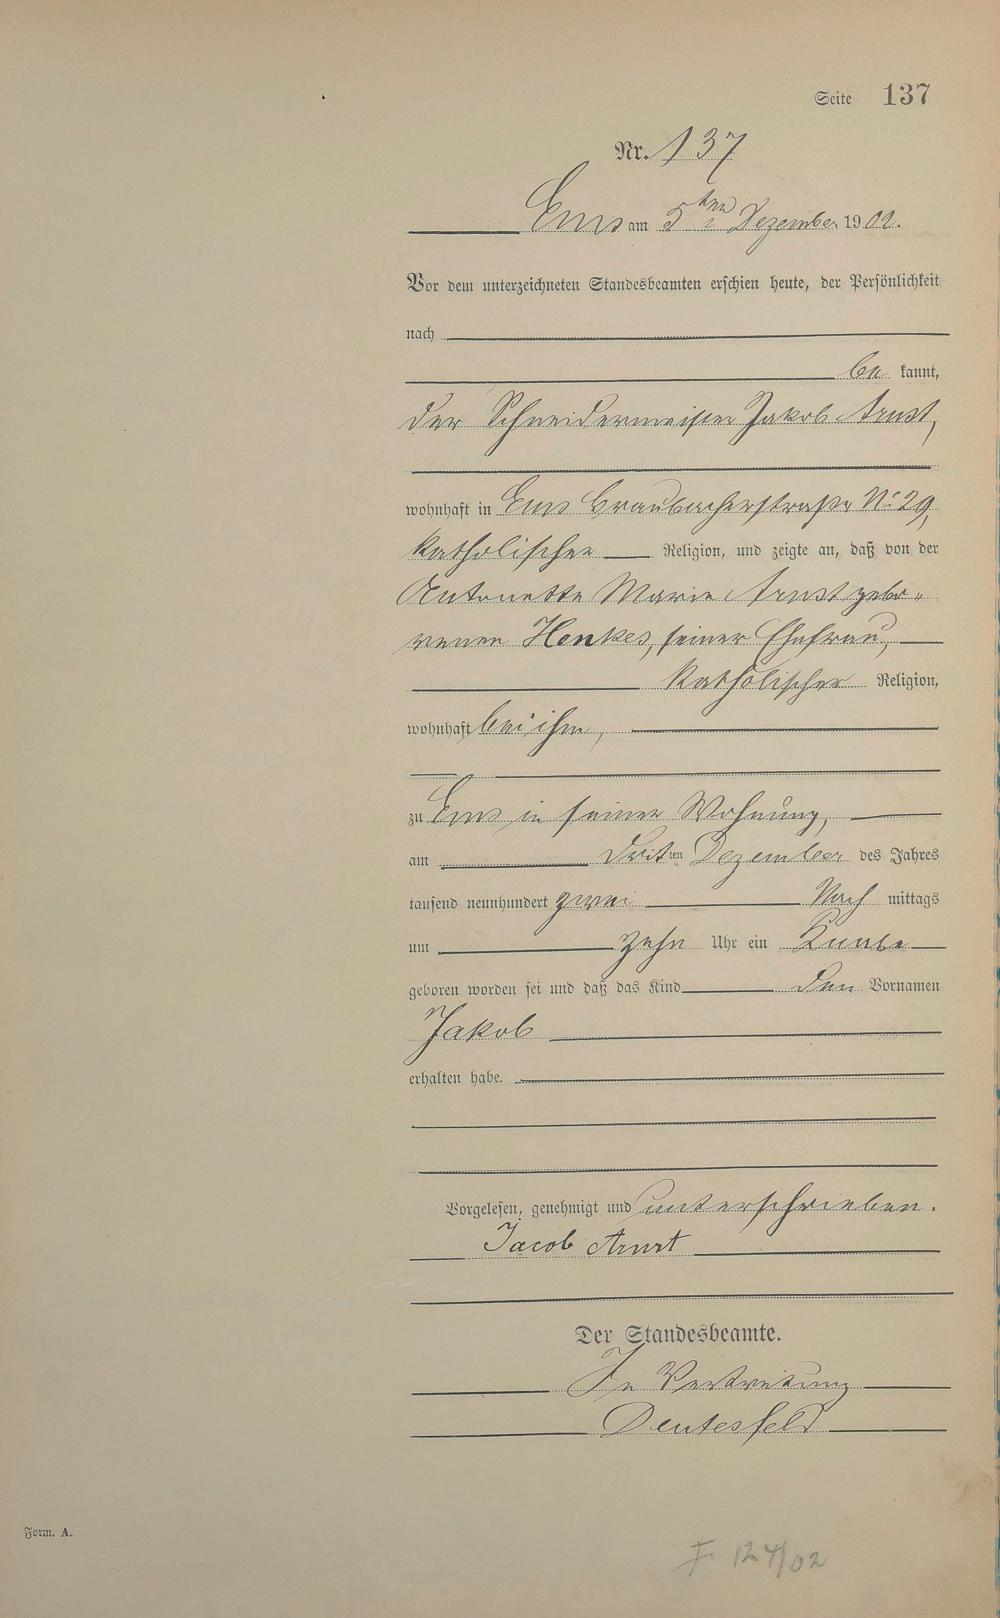 Seite 137
Nr. 137
Ems am 5ten Dezember 1902.
Vor dem unterzeichneten Standesbeamten erschien heute, der Persönlichkeit
nach
be kannt,
der Schneidermeister Jakob Arnst,
wohnhaft in Ems Braubacherstraße No 29,
katholischer Religion, und zeigte an, daß von der
Antonette Marie Arnst gebo-
renen Henkes, seiner Ehefrau,
katholischer Religion,
wohnhaft bei ihm,
zu Ems in seiner Wohnung,
am dritten Dezember des Jahres
tausend neunhundert zwei Nach mittags
um zehn Uhr ein Knabe
geboren worden sei und daß das Kind den Vornamen
Jakob
erhalten habe.
Vorgelesen, genehmigt und unterschrieben.
Jacob Arnst
Der Standesbeamte.
In Vertretung
Deutesfeld
Form. A.
124/02